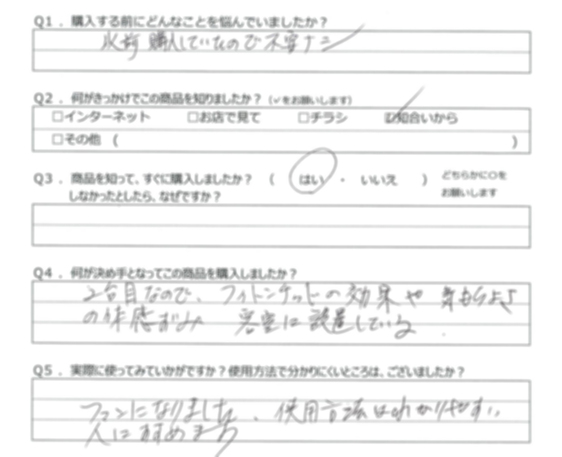 Q1．購入する前にどんなことを悩んでいましたか？
以前 購入していたので不安ナシ
Q2．何がきっかけでこの商品を知りましたか？（✓をお願いします）
□インターネット □お店で見て □チラシ ☑知合いから
□その他（ ）
Q3．商品を知って、すぐに購入しましたか？（ はい ・ いいえ ） どちらかに○を
しなかったとしたら、なぜですか？ お願いします
Q4．何が決め手となってこの商品を購入しましたか？
2台目なので、フィトンチットの効果や 気もちよさ
の体感済み 客室に設置している
Q5．実際に使ってみていかがですか？使用方法で分かりにくいところは、ございましたか？
ファンになりました、使用方法はわかりやすい
人にすすめます